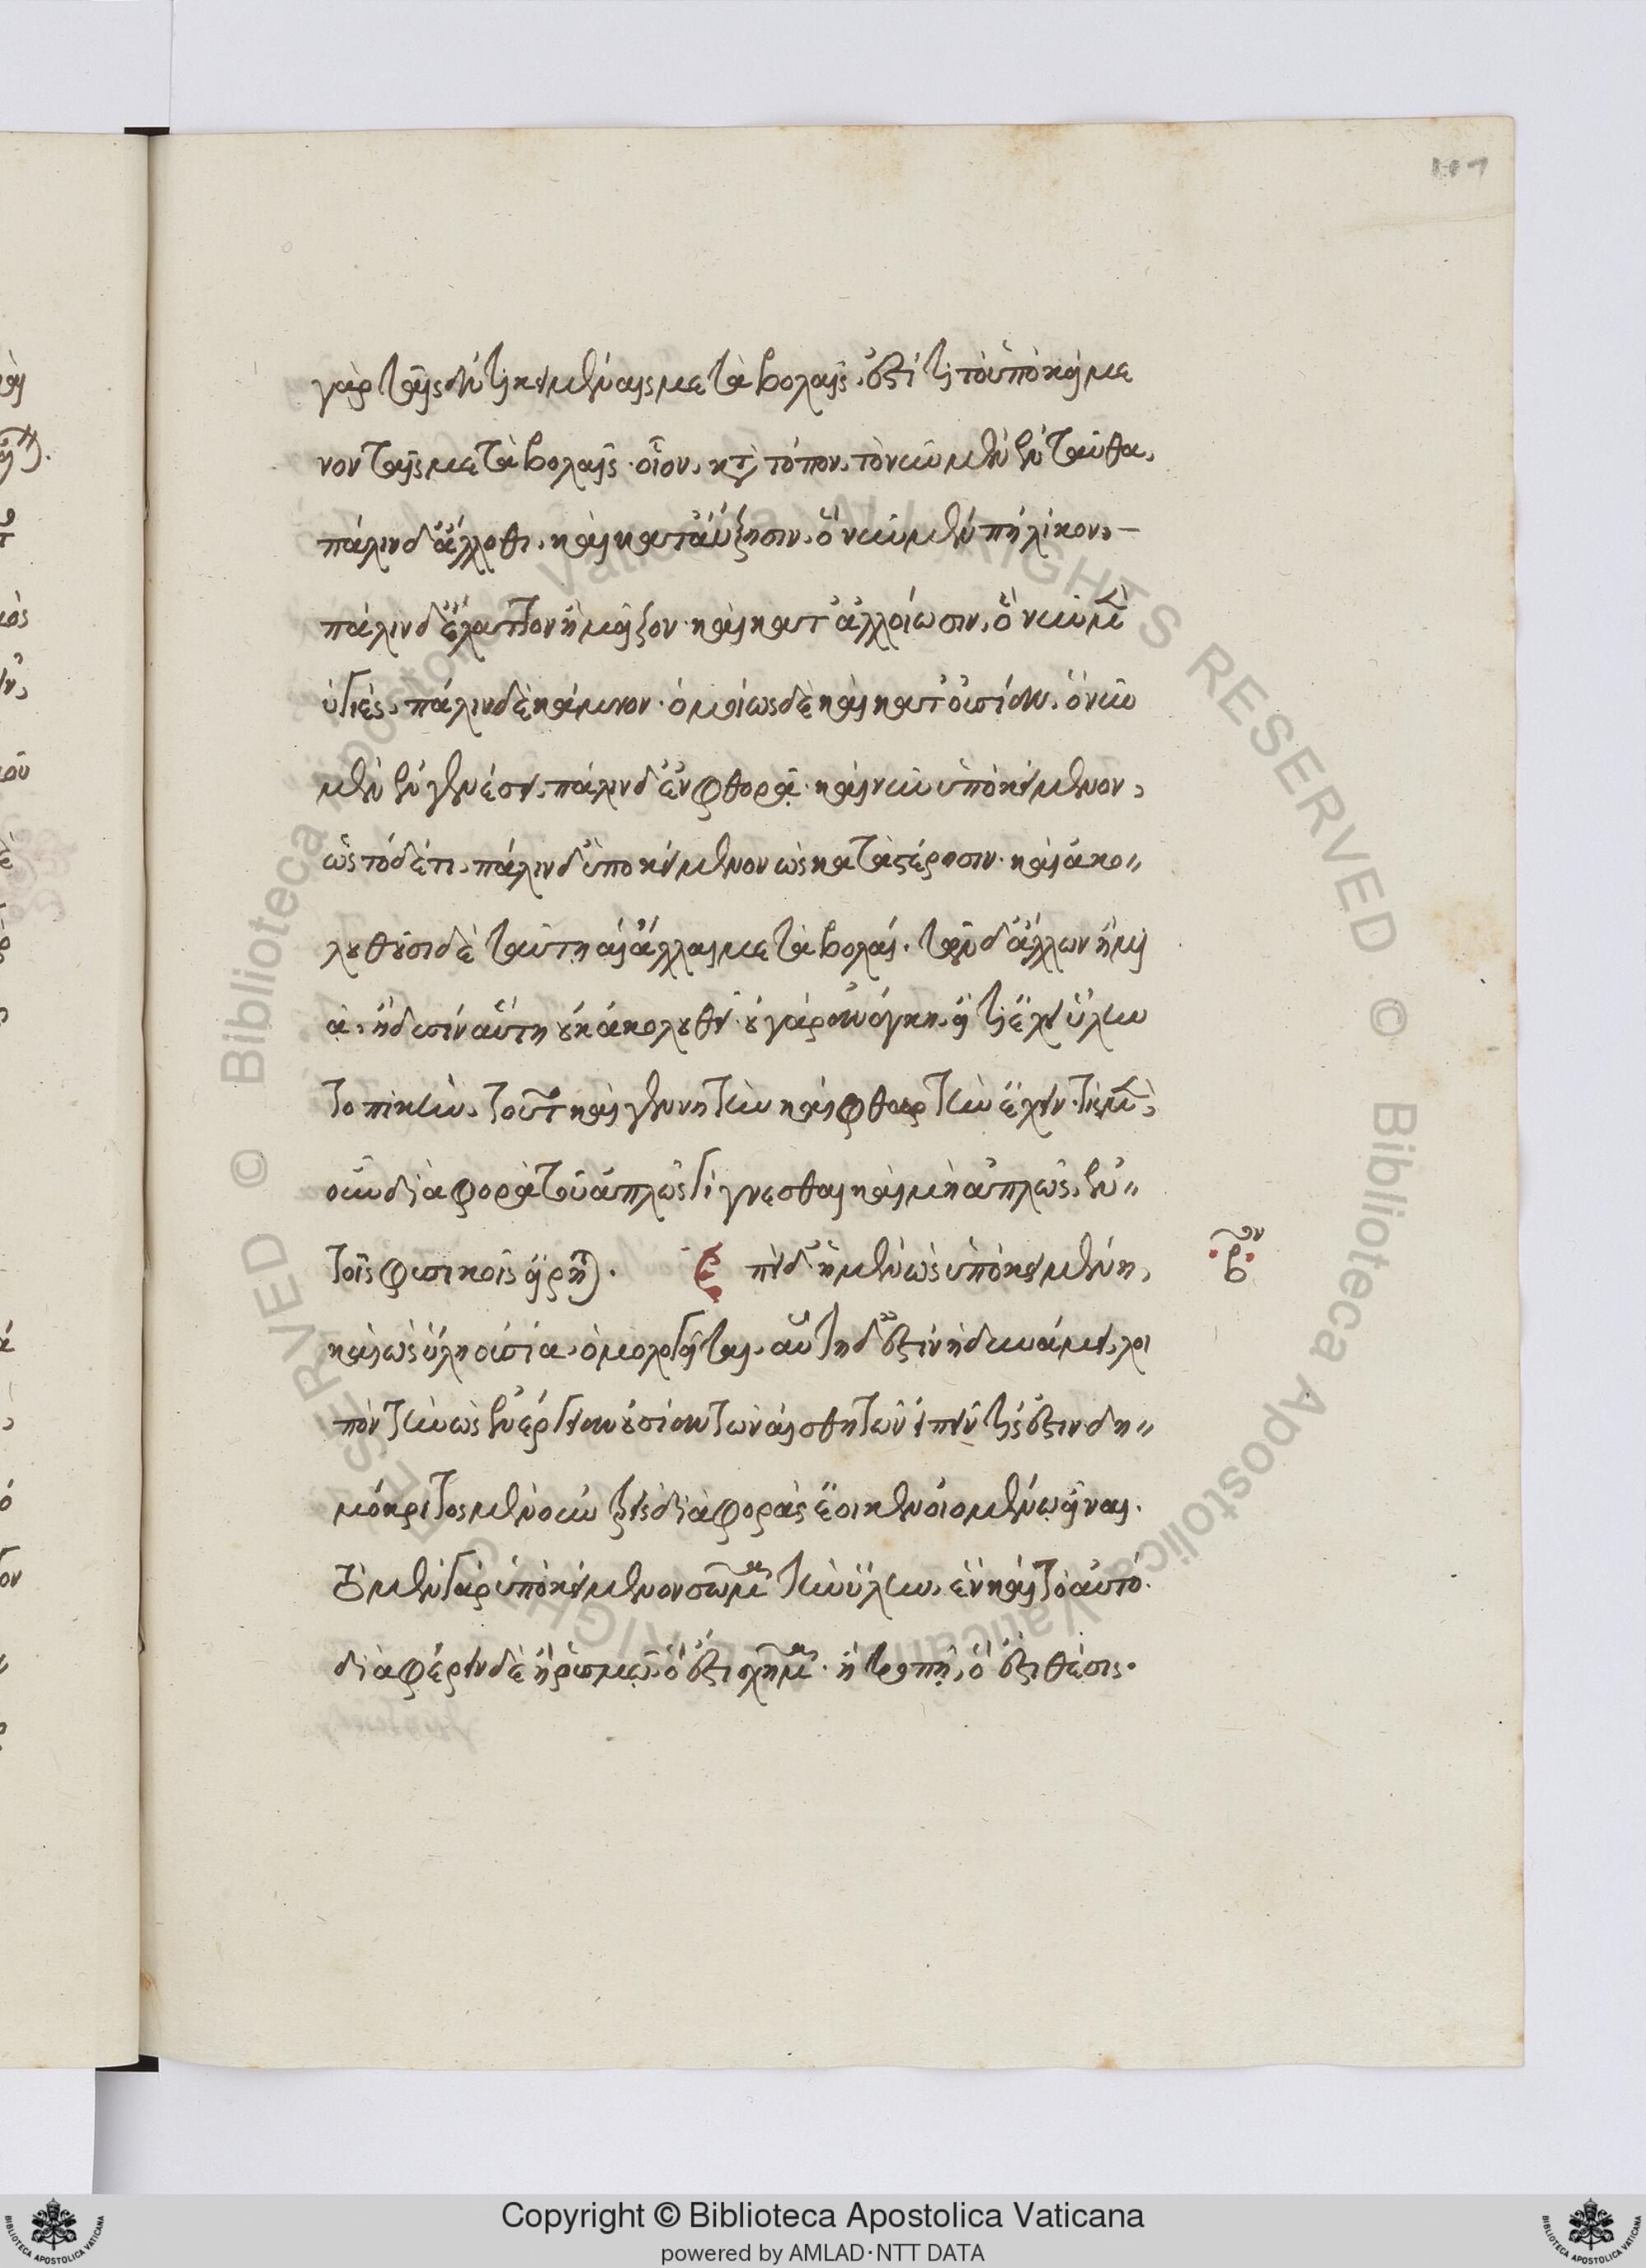 γὰρ ταῖς ἀντικειμέναις μεταβολαῖς ἐστί τι τὸ ὑποκείμε
νον ταῖς μεταβολαῖς· οἷον, κατὰ τόπον, τὸ νῦν μὲν ἐνταῦθα,
πάλιν δ' ἄλλοθι, καὶ κατ' αὔξησιν, ὃ νῦν μὲν πηλίκον, –
πάλιν δ' ἔλαττον ἢ μεῖζον· καὶ κατ' ἀλλοίωσιν, ὃ νῦν μὲν
ὑγιές, πάλιν δὲ κάμνον· ὁμοίως δὲ καὶ κατ' οὐσίαν, ὃ νῦν
μὲν ἐν γενέσει, πάλιν δ' ἐν φθορᾷ· καὶ νῦν ὑποκείμενον,
ὡς τόδέ τι, πάλιν δ' ὑποκείμενον ὡς κατὰ στέρησιν· καὶ ἀκο〃
λουθοῦσι δὲ ταύτῃ αἱ ἄλλαι μεταβολαί· τῶν δ' ἄλλων ἢ μι
ᾷ, ἢ δυσὶν αὕτη οὐκ ἀκολουθεῖ· οὐ γὰρ ἀνάγκη, εἴ τι ἔχει ὕλην
τοπικήν, τοῦτο καὶ γεννητὴν καὶ φθαρτὴν ἔχειν· τίς μὲν
οὖν διαφορὰ τοῦ ἁπλῶς γίγνεσθαι καὶ μὴ ἁπλῶς, ἐν〃
τοῖς φυσικοῖς εἴρηται. Ἐπεὶ δ' ἡ μὲν ὡς ὑποκειμένη,
καὶ ὡς ὕλη οὐσία, ὁμολογεῖται, αὕτη δ' ἐστὶν ἡ δυνάμει, λοι
πὸν τὴν ὡς ἐνέργειαν οὐσίαν τῶν αἰσθητῶν εἰπεῖν τίς ἐστιν· δη〃
μόκριτος μὲν οὖν τρεῖς διαφορὰς ἔοικεν οἰομένῳ εἶναι·
τὸ μὲν γὰρ ὑποκείμενον σῶμα τὴν ὕλην, ἓν καὶ τὸ αὐτό·
διαφέρειν δὲ ἢ ῥυσμῷ, ὅ ἐστι σχῆμα· ἢ τροπῇ, ὅ ἐστι θέσις·
Copyright © Biblioteca Apostolica Vaticana
powered by AMLAD·NTT DATA